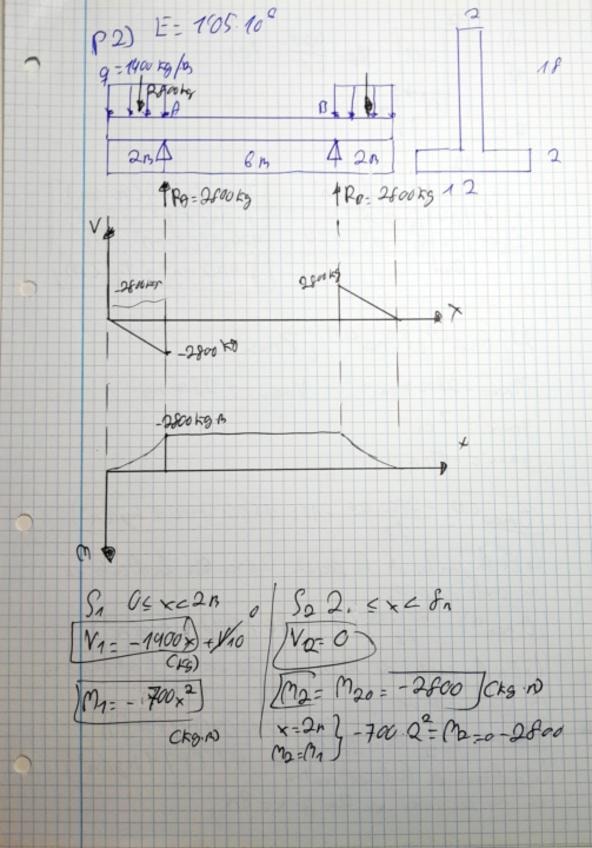 P2) E = 1'05·10⁶
q = 1400 kg/m
2800kg
A
B
2m
6m
2m
2
18
2
12
R_A = 2800kg
R_B = 2800kg
V
-2800kg
2800kg
x
-2800kg
-2800kg m
x
m
S₁ 0 ≤ x < 2m
V₁ = -1400x + V₁₀ 0
(kg)
M₁ = -700x²
(kg·m)
S₂ 2. ≤ x < 8m
V₂ = 0
M₂ = M₂₀ = -2800 (kg·m)
x = 2m } -700·2² = M₂₀ = -2800
M₂ = M₁